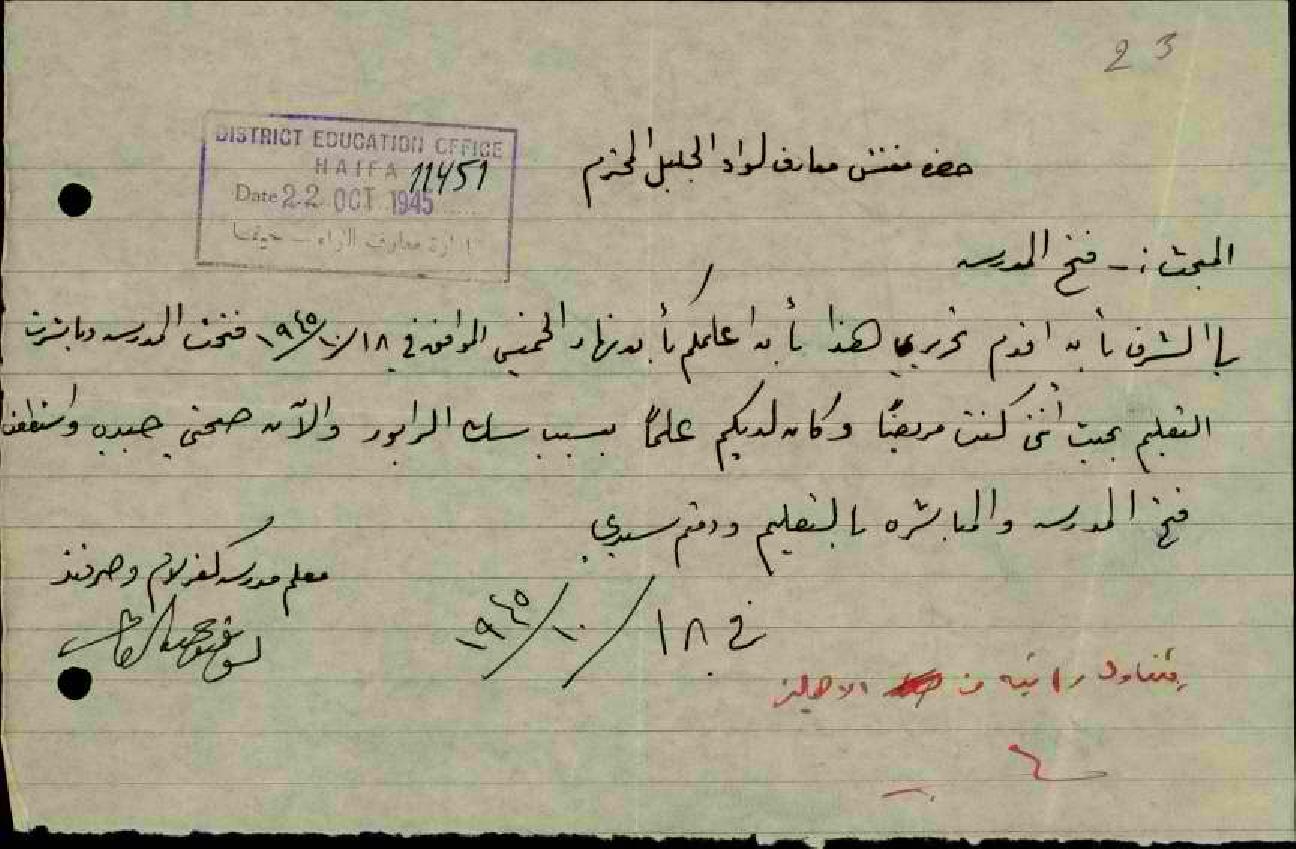 23
DISTRICT EDUCATION OFFICE
HAIFA 11451
Date 22 OCT 1945
ادارة معارف اللواء – حيفا
حضرة مفتش معارف لواء الجليل المحترم
المبحث :- فتح المدرسه
لي الشرف بأن اقدم تحريري هذا بأن اعلمكم بأن نهار الخميس الموافق في ١٨/١٠/١٩٤٥ فتحت المدرسه وباشرت
التعليم بحيث أنني كنت مريضًا وكان لديكم علمًا بسبب الرابور والآن صحتي جيده واستطعت
فتح المدرسه والمباشره بالتعليم ودمتم سيدي
معلم مدرسة كفر لام وصرفند
في ١٨/١٠/١٩٤٥
يتناول راتبه من الاهالي